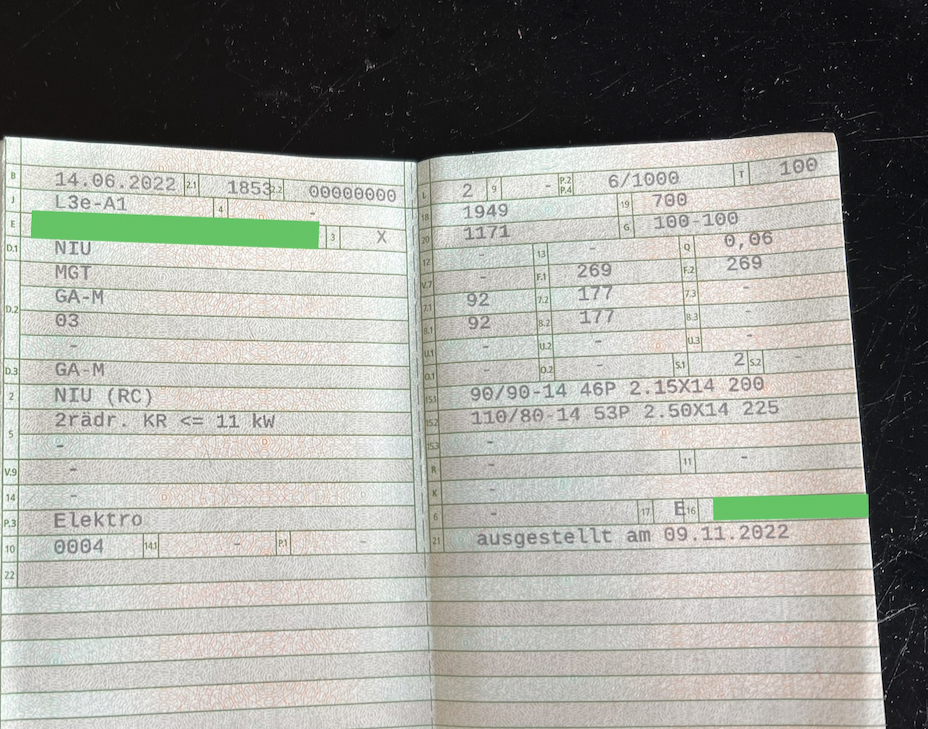 B 14.06.2022 2.1 1853 2.2 00000000
J L3e-A1 4 -
E 3 X
D.1 NIU
MGT
D.2 GA-M
03
-
D.3 GA-M
2 NIU (RC)
5 2rädr. KR <= 11 kW
-
V.9 -
14 -
P.3 Elektro
10 0004 14.1 - P.1 -
22
L 2 9 - P.2 P.4 6/1000 T 100
18 1949 19 700
20 1171 G 100-100
12 - 13 - Q 0,06
V.7 - F.1 269 F.2 269
7.1 92 7.2 177 7.3 -
8.1 92 8.2 177 8.3 -
U.1 - U.2 - U.3 -
O.1 - O.2 - S.1 2 S.2 -
15.1 90/90-14 46P 2.15X14 200
15.2 110/80-14 53P 2.50X14 225
15.3 -
R - 11 -
K -
6 - 17 E 16
21 ausgestellt am 09.11.2022